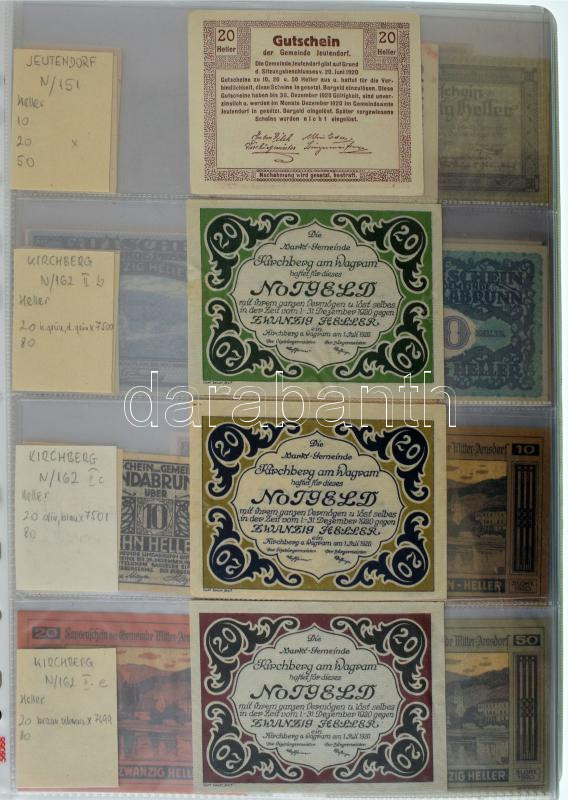 JEUTENDORF
N/151
Heller
10
20 x
50
20 Heller
Gutschein
der Gemeinde Jeutendorf.
20 Heller
Die Gemeinde Jeutendorf gibt auf Grund
d. Sitzungsbeschlusses v. 20. Juni 1920
Gutscheine zu 10, 20 u. 50 Heller aus u. haftet für die Ver-
bindlichkeit, diese Scheine in gesetzl. Bargeld einzulösen. Diese
Gutscheine haben bis 30. Dezember 1920 Giltigkeit, sind unver-
zinslich u. werden im Monate Dezember 1920 im Gemeindeamte
Jeutendorf in gesetzl. Bargeld eingelöst. Später vorgewiesene
Scheine werden nicht eingelöst.
Nachahmung wird gesetzl. bestraft.
KIRCHBERG
N/162 II b
Heller
80
ZIG HELLER
20
20
Die
Markt-Gemeinde
Kirchberg am Wagram
haftet für dieses
NOTGELD
mit ihrem ganzen Vermögen u. löst selbes
in der Zeit vom 1-31. Dezember 1920 gegen
ZWANZIG HELLER
ein.
Kirchberg a. Wagram am 1. Juli 1920.
Der Vizebürgermeister: Der Bürgermeister:
20
20
SCHEIN
DABRUNN
HELLER
darabanth
KIRCHBERG
N/162 II c
Heller
80
SCHEIN
GEMEIN
NDABRUNN
ÜBER
10
HN HELLER
20
20
Die
Markt-Gemeinde
Kirchberg am Wagram
haftet für dieses
NOTGELD
mit ihrem ganzen Vermögen u. löst selbes
in der Zeit vom 1-31. Dezember 1920 gegen
ZWANZIG HELLER
ein.
Kirchberg a. Wagram am 1. Juli 1920.
Der Vizebürgermeister: Der Bürgermeister:
20
20
Mitter-Arnsdorf
10
N-HELLER
KIRCHBERG
N/162 II e
Heller
80
20 Kassenschein der Gemeinde Mitter-Arns
ZWANZIG HELL
20
20
Die
Markt-Gemeinde
Kirchberg am Wagram
haftet für dieses
NOTGELD
mit ihrem ganzen Vermögen u. löst selbes
in der Zeit vom 1-31. Dezember 1920 gegen
ZWANZIG HELLER
ein.
Kirchberg a. Wagram am 1. Juli 1920.
Der Vizebürgermeister: Der Bürgermeister:
20
20
Mitter-Arnsdorf
50
ZIG HELLER